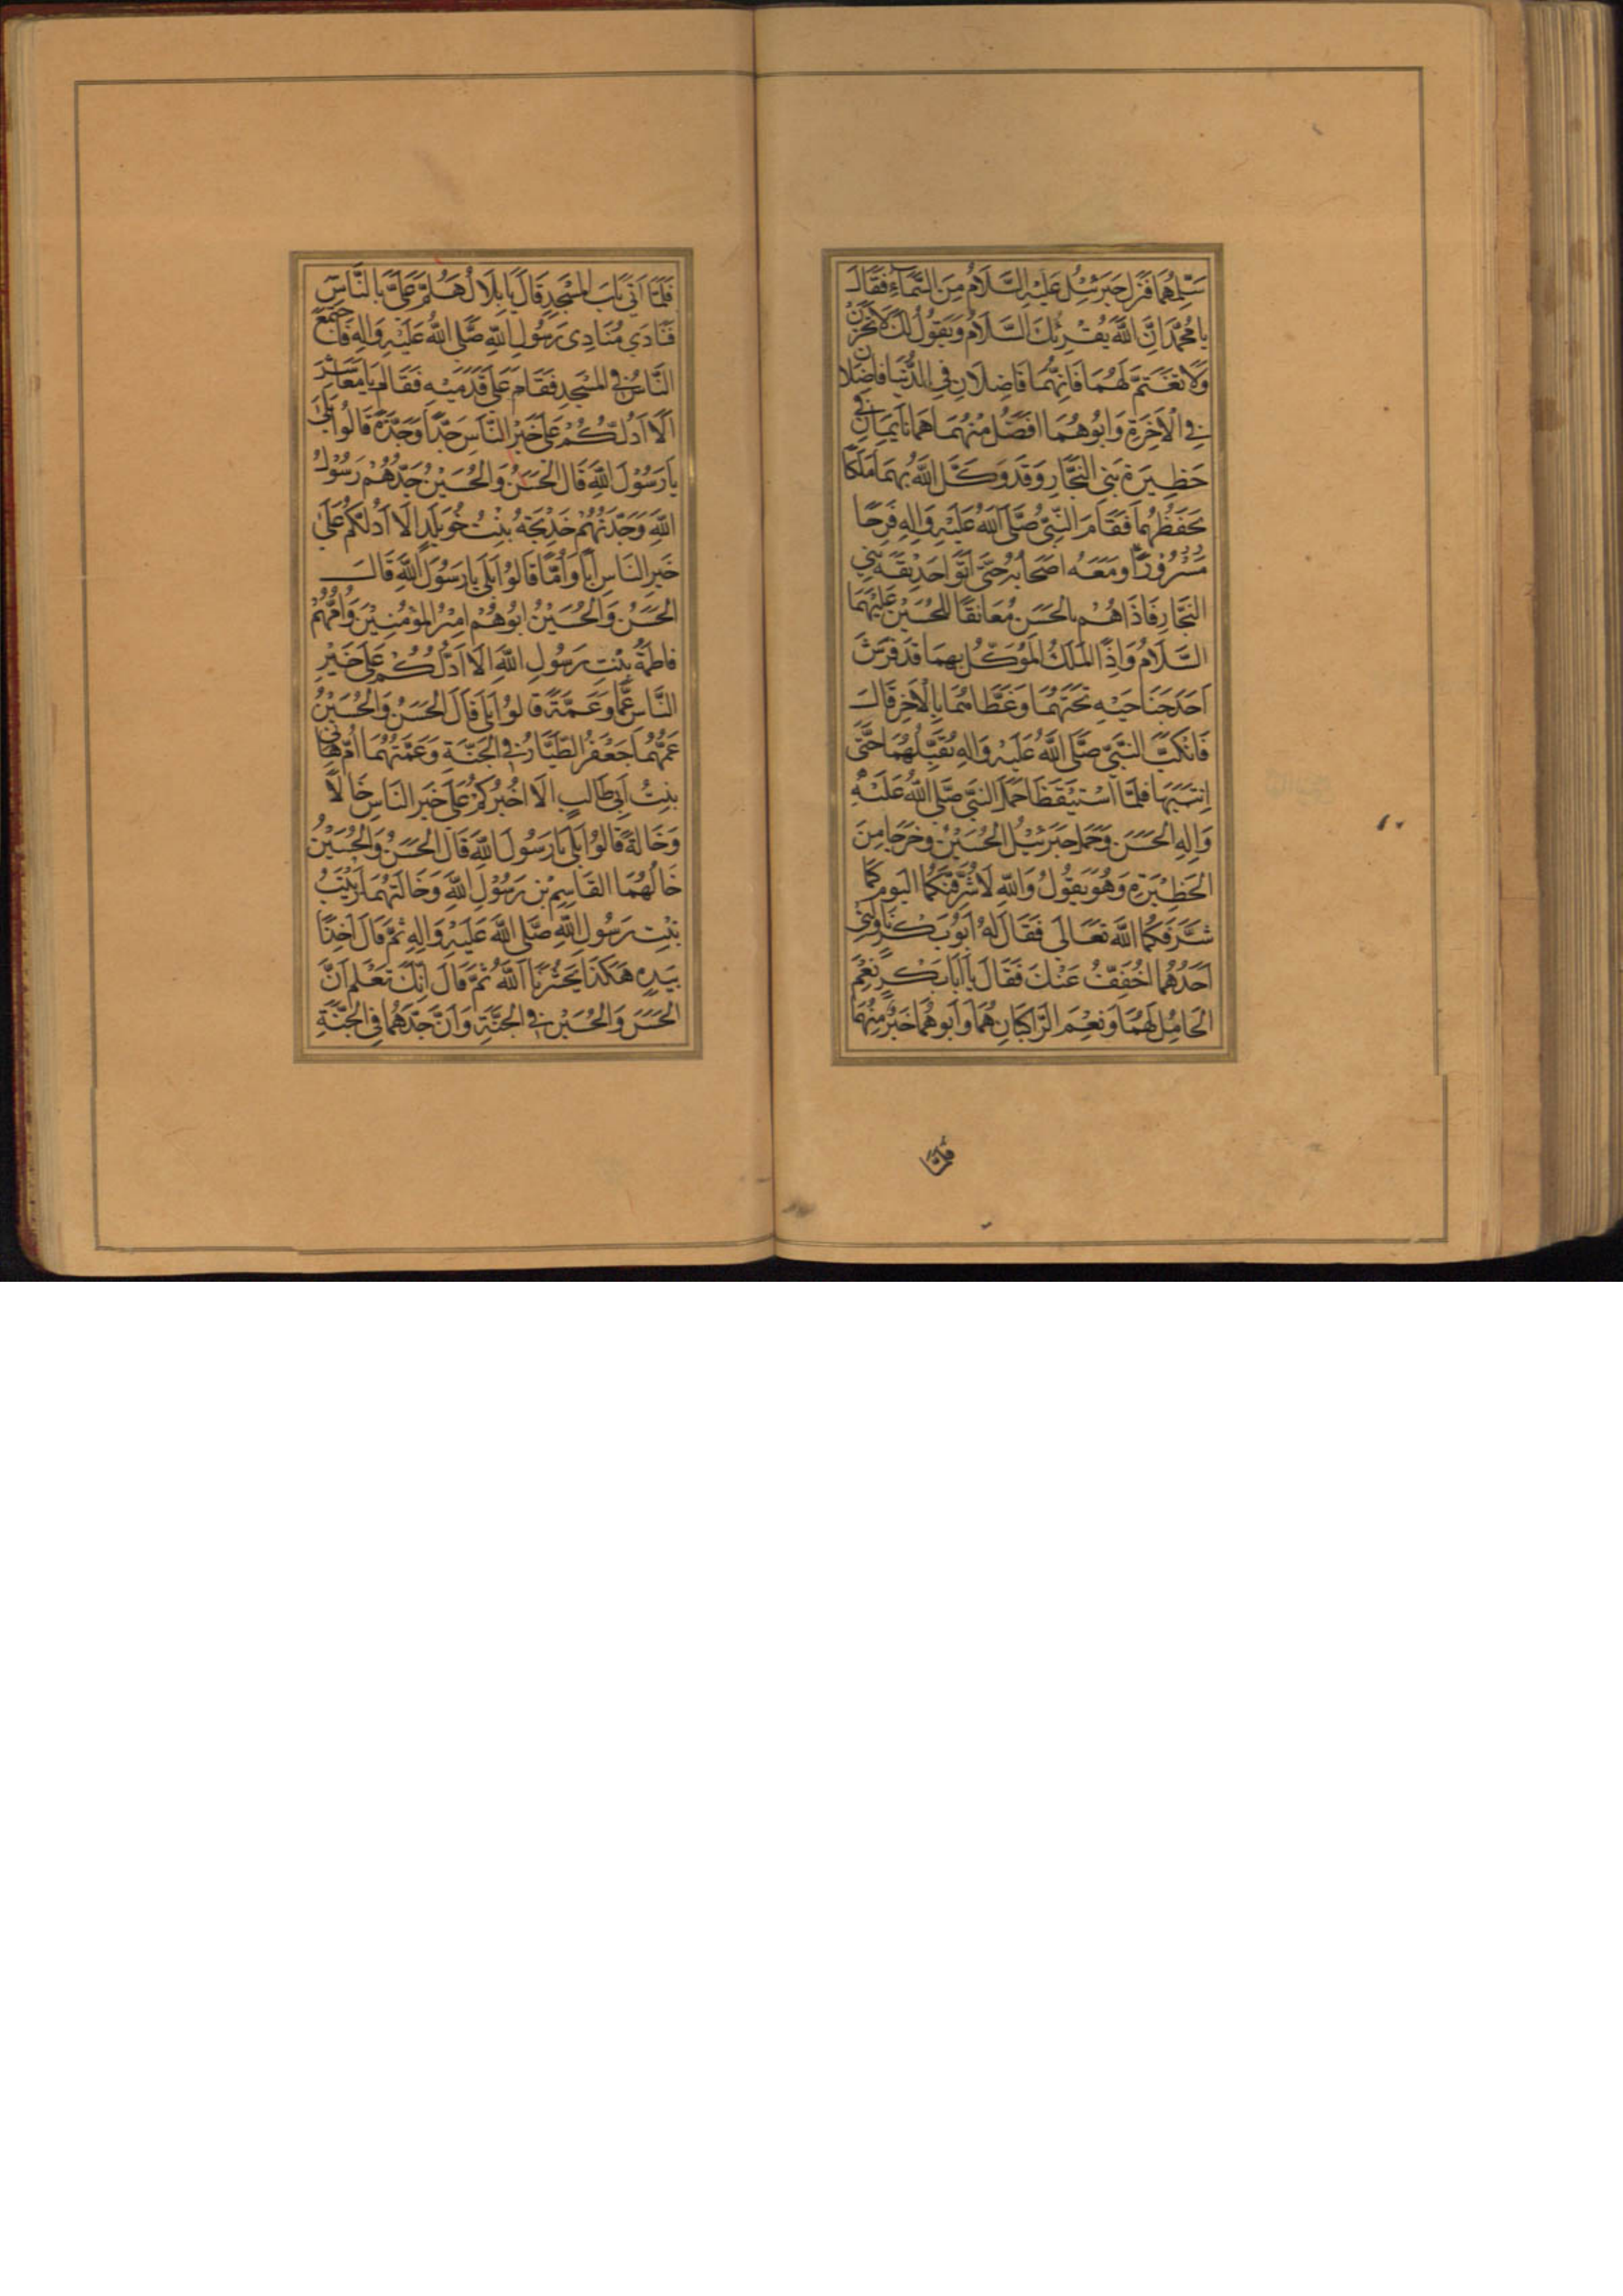 سَلِّمْهُمَا فَنَزَلَ جَبْرَئِيلُ عَلَيْهِ السَّلَامُ مِنَ السَّمَاءِ فَقَالَ
يَا مُحَمَّدُ اِنَّ اللَّهَ يُقْرِئُكَ السَّلَامَ وَيَقُولُ لَكَ لَا تَحْزَنْ
وَلَا تَغْتَمَّ لَهُمَا فَاِنَّهُمَا فَاضِلَانِ فِي الدُّنْيَا فَاضِلَانِ
فِي الْاٰخِرَةِ وَاَبُوهُمَا اَفْضَلُ مِنْهُمَا هُمَا نَايِمَانِ فِي
حَظِيرَةِ بَنِي النَّجَّارِ وَقَدْ وَكَّلَ اللَّهُ بِهِمَا مَلَكًا
يَحْفَظُهُمَا فَقَامَ النَّبِيُّ صَلَّى اللَّهُ عَلَيْهِ وَاٰلِهِ فَرِحًا
مَسْرُورًا وَمَعَهُ اَصْحَابُهُ حَتَّى اَتَوْا حَدِيقَةَ بَنِي
النَّجَّارِ فَاِذَا هُمْ بِالْحَسَنِ مُعَانِقًا لِلْحُسَيْنِ عَلَيْهِمَا
السَّلَامُ وَاِذَا الْمَلَكُ الْمُوَكَّلُ بِهِمَا قَدْ فَرَشَ
اَحَدَ جَنَاحَيْهِ تَحْتَهُمَا وَغَطَّاهُمَا بِالْاٰخَرِ قَالَ
فَانْكَبَّ النَّبِيُّ صَلَّى اللَّهُ عَلَيْهِ وَاٰلِهِ يُقَبِّلُهُمَا حَتَّى
اِنْتَبَهَا فَلَمَّا اسْتَيْقَظَا حَمَلَ النَّبِيُّ صَلَّى اللَّهُ عَلَيْهِ
وَاٰلِهِ الْحَسَنَ وَحَمَلَ جَبْرَئِيلُ الْحُسَيْنَ وَخَرَجَا مِنَ
الْحَظِيْرَةِ وَهُوَ يَقُولُ وَاللَّهِ لَاُشَرِّفَنَّكُمَا الْيَوْمَ كَمَا
شَرَّفَكُمَا اللَّهُ تَعَالَى فَقَالَ لَهُ اَبُو بَكْرٍ نَاوِلْنِي
اَحَدَهُمَا اُخَفِّفُ عَنْكَ فَقَالَ يَا اَبَا بَكْرٍ نِعْمَ
الْحَامِلُ لَهُمَا وَنِعْمَ الرَّاكِبَانِ هُمَا وَاَبُوهُمَا خَيْرٌ مِنْهُمَا
فَلَمَّا
فَلَمَّا اَتَى بَابَ الْمَسْجِدِ قَالَ يَا بِلَالُ هَلُمَّ عَلَيَّ بِالنَّاسِ
فَنَادَى مُنَادِي رَسُولِ اللَّهِ صَلَّى اللَّهُ عَلَيْهِ وَاٰلِهِ فَاجْتَمَعَ
النَّاسُ فِي الْمَسْجِدِ فَقَامَ عَلَى قَدَمَيْهِ فَقَالَ يَا مَعَاشِرَ
اَلَا اَدُلُّكُمْ عَلَى خَيْرِ النَّاسِ جَدًّا وَجَدَّةً قَالُوا بَلَى
يَا رَسُوْلَ اللَّهِ قَالَ الْحَسَنُ وَالْحُسَيْنُ جَدُّهُمْ رَسُوْلُ
اللَّهِ وَجَدَّتُهُمْ خَدِيْجَةُ بِنْتُ خُوَيْلِدٍ اَلَا اَدُلُّكُمْ عَلَى
خَيْرِ النَّاسِ اَبًا وَاُمًّا قَالُوا بَلَى يَا رَسُوْلَ اللَّهِ قَالَ
الْحَسَنُ وَالْحُسَيْنُ اَبُوهُمْ اَمِيْرُ الْمُؤْمِنِيْنَ وَاُمُّهُمْ
فَاطِمَةُ بِنْتِ رَسُولِ اللَّهِ اَلَا اَدُلُّكُمْ عَلَى خَيْرِ
النَّاسِ عَمًّا وَعَمَّةً قَالُوا بَلَى قَالَ الْحَسَنُ وَالْحُسَيْنُ
عَمُّهُمَا جَعْفَرُ الطَّيَّارُ فِي الْجَنَّةِ وَعَمَّتُهُمَا اُمُّ هَانِي
بِنْتُ اَبِي طَالِبٍ اَلَا اُخْبِرُكُمْ عَلَى خَيْرِ النَّاسِ خَالًا
وَخَالَةً قَالُوا بَلَى يَا رَسُوْلَ اللَّهِ قَالَ الْحَسَنُ وَالْحُسَيْنُ
خَالُهُمَا الْقَاسِمُ بْنُ رَسُوْلِ اللَّهِ وَخَالَتُهُمَا زَيْنَبُ
بِنْتِ رَسُولِ اللَّهِ صَلَّى اللَّهُ عَلَيْهِ وَاٰلِهِ ثُمَّ قَالَ اٰخِذًا
بِيَدِهِ هٰكَذَا يَحْشُرُنَا اللَّهُ ثُمَّ قَالَ اِنَّكَ تَعْلَمُ اَنَّ
الْحَسَنَ وَالْحُسَيْنَ فِي الْجَنَّةِ وَاَنَّ جَدَّهُمَا فِي الْجَنَّةِ